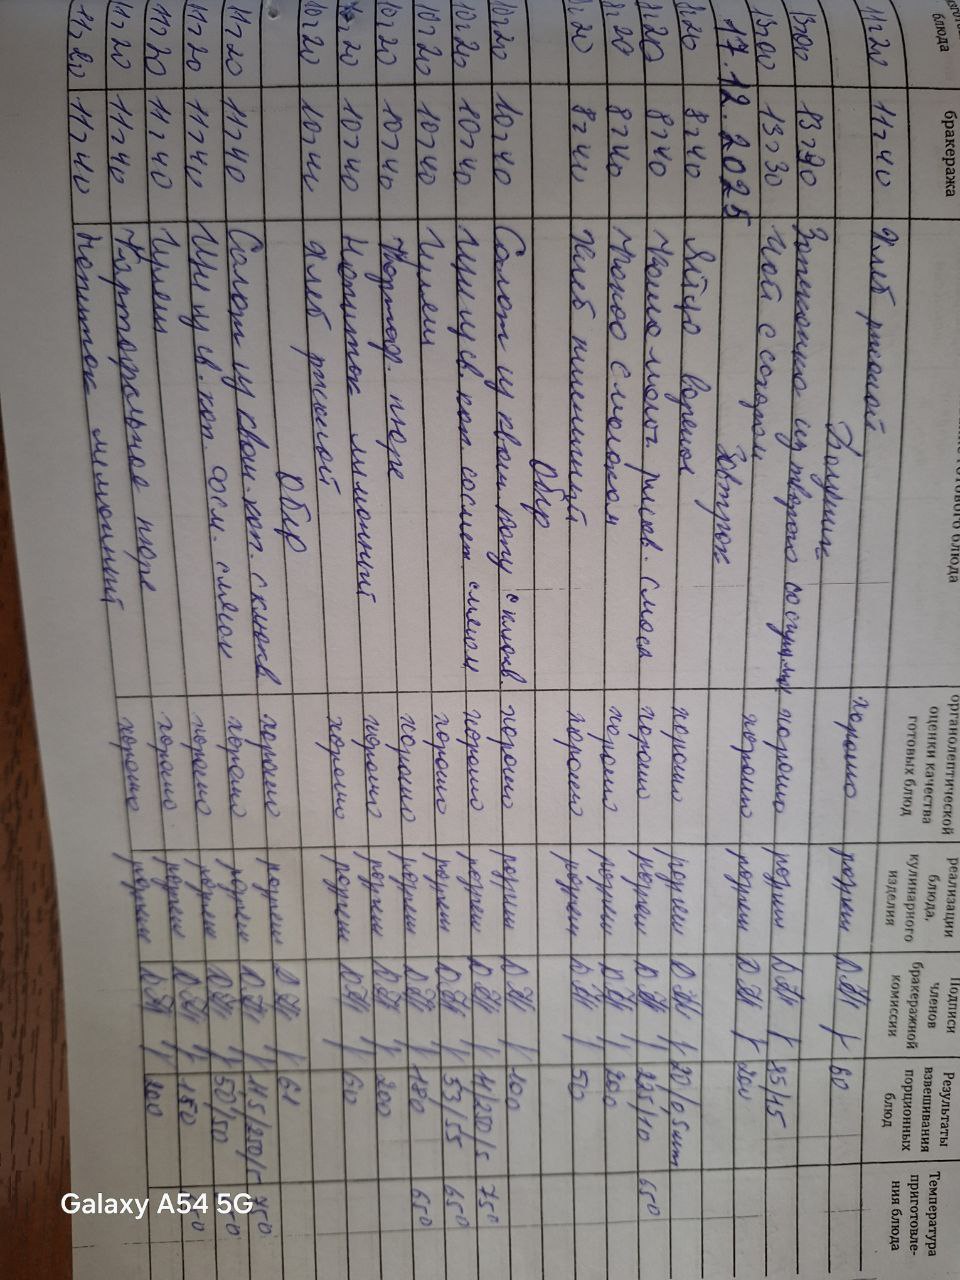 блюда | бракеража | готового блюда | органолептической оценки качества готовых блюд | реализации блюда, кулинарного изделия | Подписи членов бракеражной комиссии | Результаты взвешивания порционных блюд | Температура приготовле-ния блюда
11 20 | 11 40 | Хлеб ржаной | хорошо | разреш | 60
Полдник
13 00 | 13 20 | Запеканка из творога со сгущ. | хорошо | разреш | 85/15
13 00 | 13 30 | Чай с сахаром | хорошо | разреш | 200
17.12.2025 Завтрак
8 20 | 8 40 | Яйцо вареное | хорошо | разреш | 20/0,5шт
8 20 | 8 40 | Каша молоч. рисов. | хорошо | разреш | 225/10 | 65°
8 20 | 8 40 | Какао с молоком | хорошо | разреш | 200
8 20 | 8 40 | Хлеб пшеничный | хорошо | разреш | 50
Обед
10 20 | 10 40 | Салат из кваш. капу с клюкв. | хорошо | разреш | 100
10 20 | 10 40 | Щи из св. кап со смет. с мясом | хорошо | разреш | 11/250/5 | 75°
10 20 | 10 40 | Гуляш | хорошо | разреш | 53/55 | 65°
10 20 | 10 40 | Картоф. пюре | хорошо | разреш | 180 | 65°
10 20 | 10 40 | Напиток лимонный | хорошо | разреш | 200
10 20 | 10 40 | Хлеб ржаной | хорошо | разреш | 60
Обед
11 20 | 11 40 | Салат из кваш. кап. с клюкв | хорошо | разреш | 61
11 20 | 11 40 | Щи из св. кап. со см. с мясом | хорошо | разреш | 11,5/250/5 | 75°
11 20 | 11 40 | Гуляш | хорошо | разреш | 50/50
11 20 | 11 40 | Картофельное пюре | хорошо | разреш | 150
11 20 | 11 40 | Напиток лимонный | хорошо | разреш | 200
Galaxy A54 5G